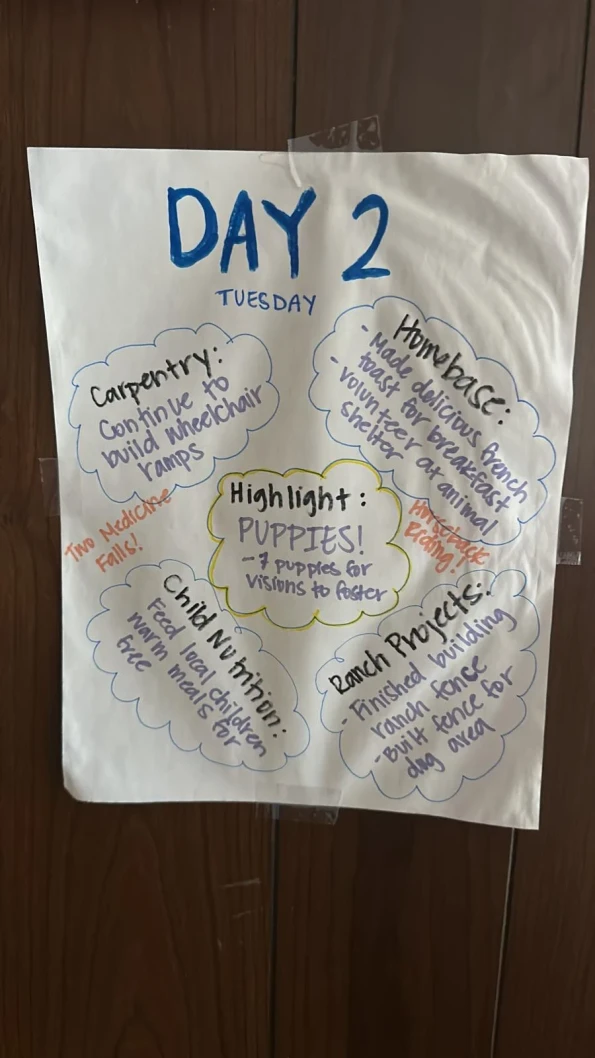 DAY 2
TUESDAY
Carpentry:
Continue to
build wheelchair
ramps
Homebase:
- Made delicious french
toast for breakfast
- Volunteer at animal
shelter
Two Medicine
Falls!
Highlight:
PUPPIES!
- 7 puppies for
visions to foster
Horseback
Riding!
Child Nutrition:
Feed local children
warm meals for
free
Ranch Projects:
- Finished building
ranch fence
- Built fence for
dog area